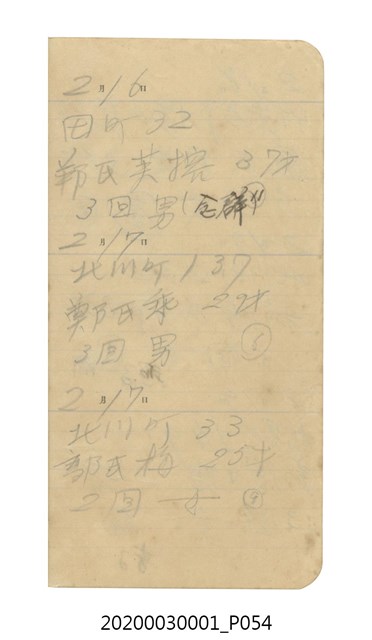 2月16日
田町 32
鄭氏芙蓉 37才
3回 男
2月17日
北川町 137
鄭氏乘 29才
3回 男
2月17日
北川町 33
郭氏梅 25才
2回 女
20200030001_P054